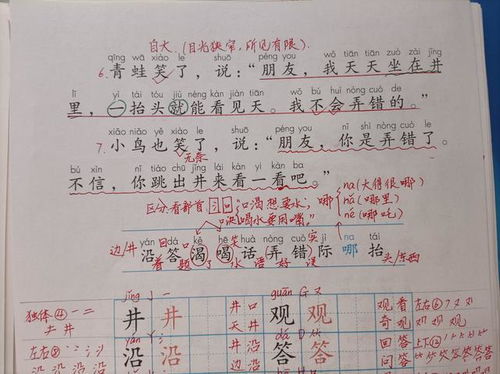 自大.(目光狭窄,所见有限).
qīng wā xiào le shuō péng you wǒ tiān tiān zuò zài jǐng
6.青蛙笑了，说：“朋友，我天天坐在井
lǐ yì tái tóu jiù néng kàn jiàn tiān wǒ bú huì nòng cuò de
里，一抬头就能看见天。我不会弄错的。”
xiǎo niǎo yě xiào le shuō péng you nǐ shì nòng cuò le
7.小鸟也笑了，说：“朋友，你是弄错了。
无奈
bú xìn nǐ tiào chū jǐng lái kàn yí kàn ba
不信，你跳出井来看一看吧。”
区分看新首 口渴想要水,
喝水要用嘴."
哪
na(大得很哪)
nǎ(哪里)
né(哪吒)
边/井 yán 回 dá kě hē 笑 huà nòng cuò 实 jì na tái
沿答渴喝话弄错际哪抬 头/东西
着 题 了 水 语 好 误
jǐng guān
独体④一二
井 井 井 井口 天井
观 观 观看 奇观
左右⑥
yán
左右⑧
沿 沿 沿
答 答 回答 问答
上下⑫